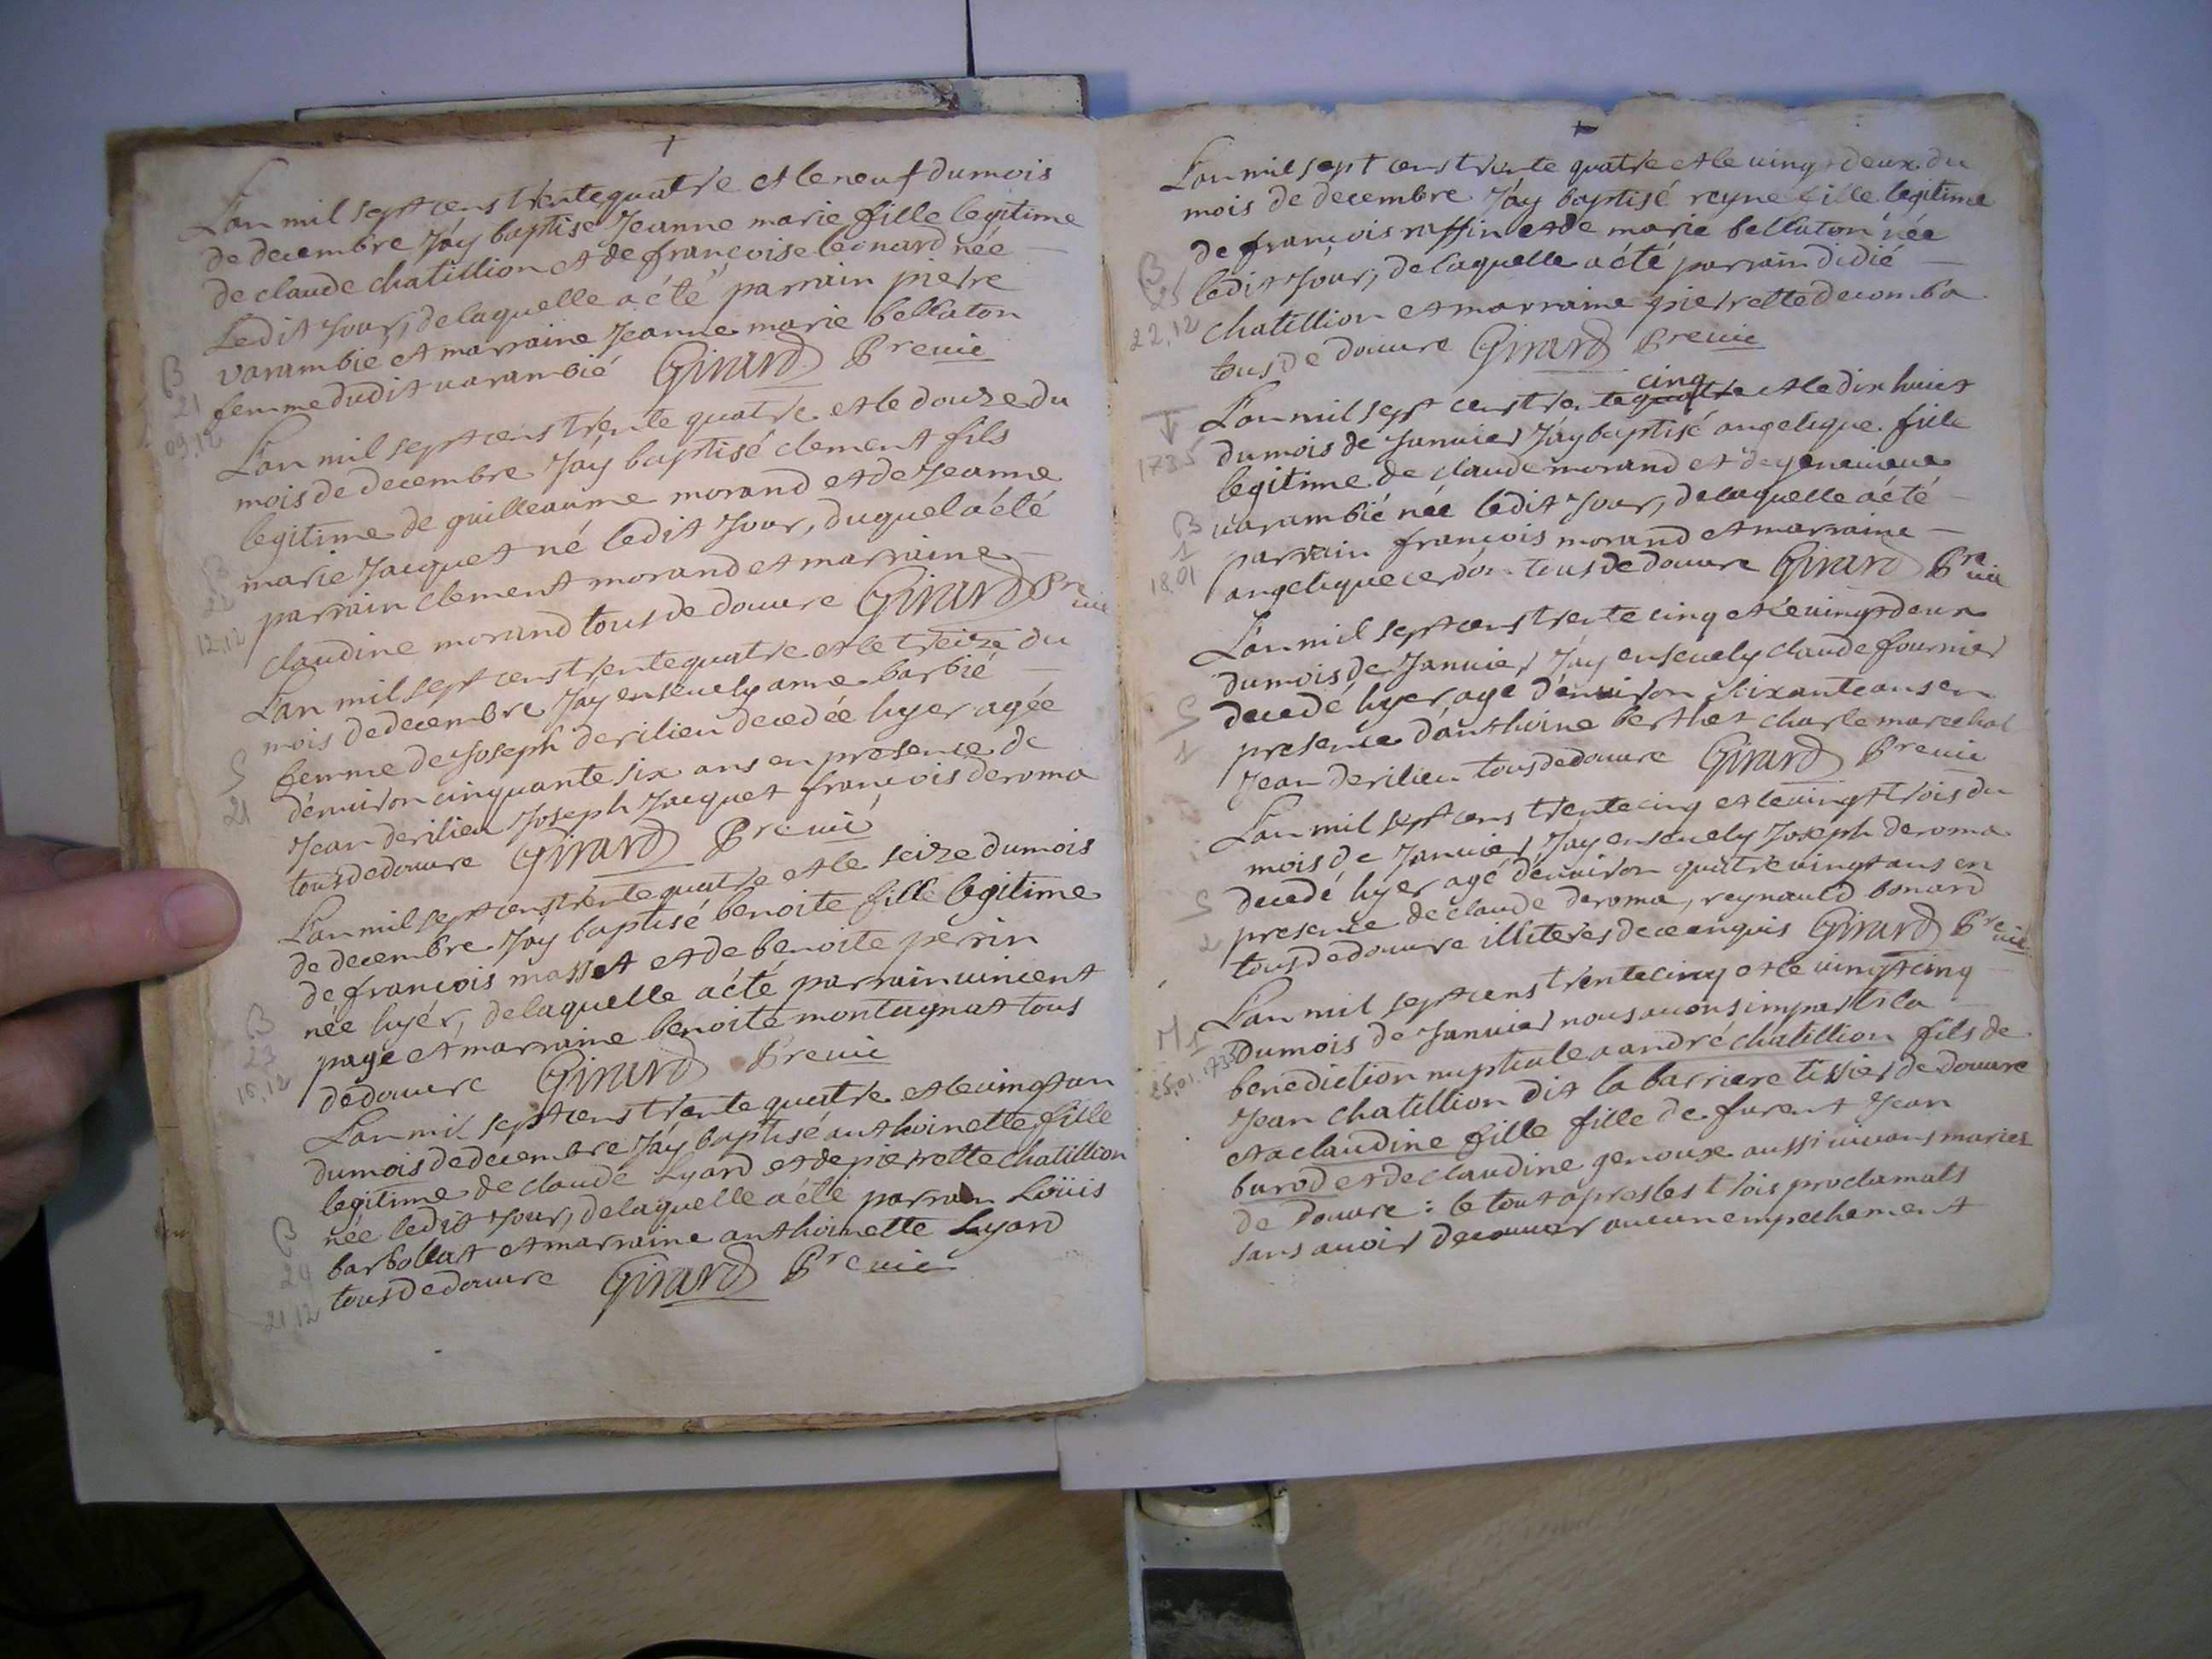 +
L'an mil sept cens trente quatre et le neuf du mois
de decembre J'ay baptisé Jeanne marie fille legitime
de claude chatillion et de françoise leonard née
Ledit Jour, de laquelle a été parrain pierre
varambié et marraine Jeanne marie bellaton
femme dudit varambié Girard Pre vic
B
21
09.12
L'an mil sept cens trente quatre et le douze du
mois de decembre J'ay baptisé clement fils
legitime de guilleaume morand et de Jeanne
marie Jacquet né ledit Jour, duquel a été
parrain clement morand et marraine
claudine morand tous de douure Girard Pre vic
B
22
12.12
L'an mil sept cens trente quatre et le treize du
mois de decembre J'ay enseuely anne barbié
femme de Joseph derilieu decedée hyer agée
d'enuiron cinquante six ans en presence de
Jean derilieu Joseph Jacquet françois deroma
tous de douure Girard Pre vic
S
21
L'an mil sept cens trente quatre et le seize du mois
de decembre J'ay baptisé benoite fille legitime
de françois masset et de benoite perrin
née hyér, de laquelle a été parrain vincent
page et marraine benoite montagnat tous
de douure Girard Pre vic
B
23
16.12
L'an mil sept cens trente quatre et le vingt un
du mois de decembre J'ay baptisé anthoinette fille
legitime de claude Lyard et de pierrette chatillion
née ledit Jour, de laquelle a été parrain Loüis
barbollat et marraine anthoinette Lyard
tous de douure Girard Pre vic
B
24
21.12
+
L'an mil sept cens trente quatre et le vingt deux du
mois de decembre J'ay baptisé reyne fille legitime
de françois raffin et de marie bellaton née
ledit Jour, de laquelle a été parrain didié
chatillion et marraine pierrette decomba
tous de douure Girard Pre vic
B
25
22.12
cinq
L'an mil sept cens trente quatre et le dix huict
du mois de Januier J'ay baptisé angelique fille
legitime de claude morand et de geneuieue
varambié née ledit Jour, de laquelle a été
parrain françois morand et marraine
angelique cerdon tous de douure Girard Pre vic
1735
B
1
18.01
L'an mil sept cens trente cinq et le vingt deux
du mois de Januier J'ay enseuely claude fournier
decedé hyer, agé d'enuiron soixante ans en
presence d'anthoine berthet charle marechal
Jean derilieu tous de douure Girard Pre vic
S
1
L'an mil sept cens trente cinq et le vingt trois du
mois de Januier J'ay enseuely Joseph deroma
decedé hyer agé d'enuiron quatre vingt ans en
presence de claude deroma, reynauld bonard
tous de douure illiteres de ce enquis Girard Pre vic
S
2
L'an mil sept cens trente cinq et le vingt cinq
du mois de Januier nous auons imparti la
benediction nuptiale a andré chatillion fils de
Jean chatillion dit la barriere tissier de douure
et a claudine fille fille de furent Jean
burod et de claudine genoux aussi viuans mariez
de Douure : le tout apres les trois proclamats
sans auoir decouuer aucun empechement
M 1
25.01.1735